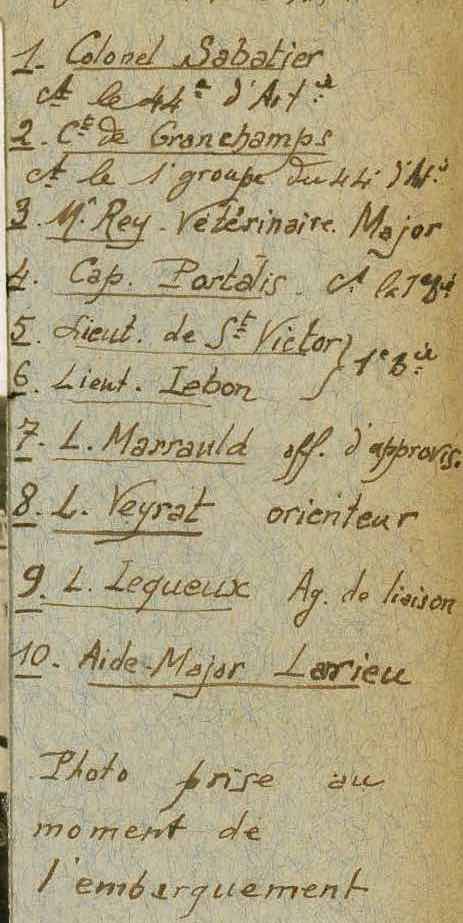 1. Colonel Sabatier
Ct le 44e d'Artie
2. Ct de Granchamps
ct le 1r groupe du 44e d'Art.ie
3. Mr Rey. Vétérinaire. Major
4. Cap. Portalis. ct la 1e Bie
5. Lieut. de St Victor } 1e Bie
6. Lieut. Lebon
7. L. Marrauld off. d'approvis.
8. L. Veyrat orienteur
9. L. Lequeux Ag. de liaison
10. Aide-Major Larieu
Photo prise au
moment de
l'embarquement